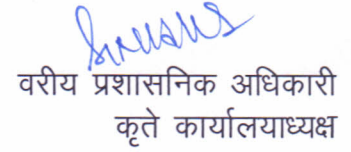 वरीय प्रशासनिक अधिकारी
कृते कार्यालयाध्यक्ष